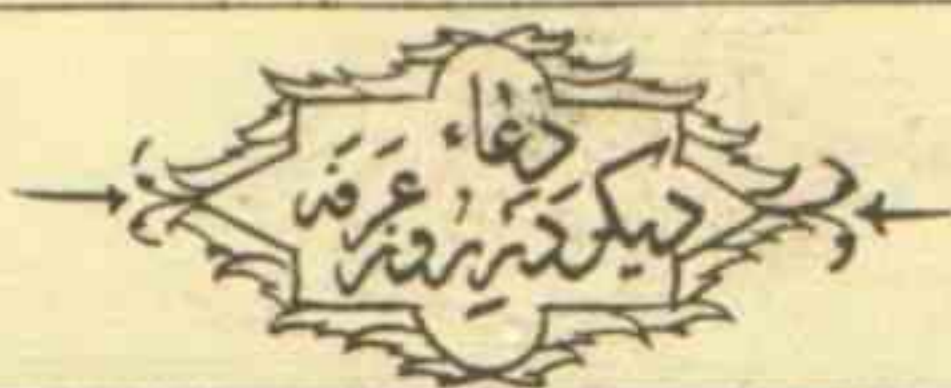 دُعَاء
دیگر دَر روز عَرَفه